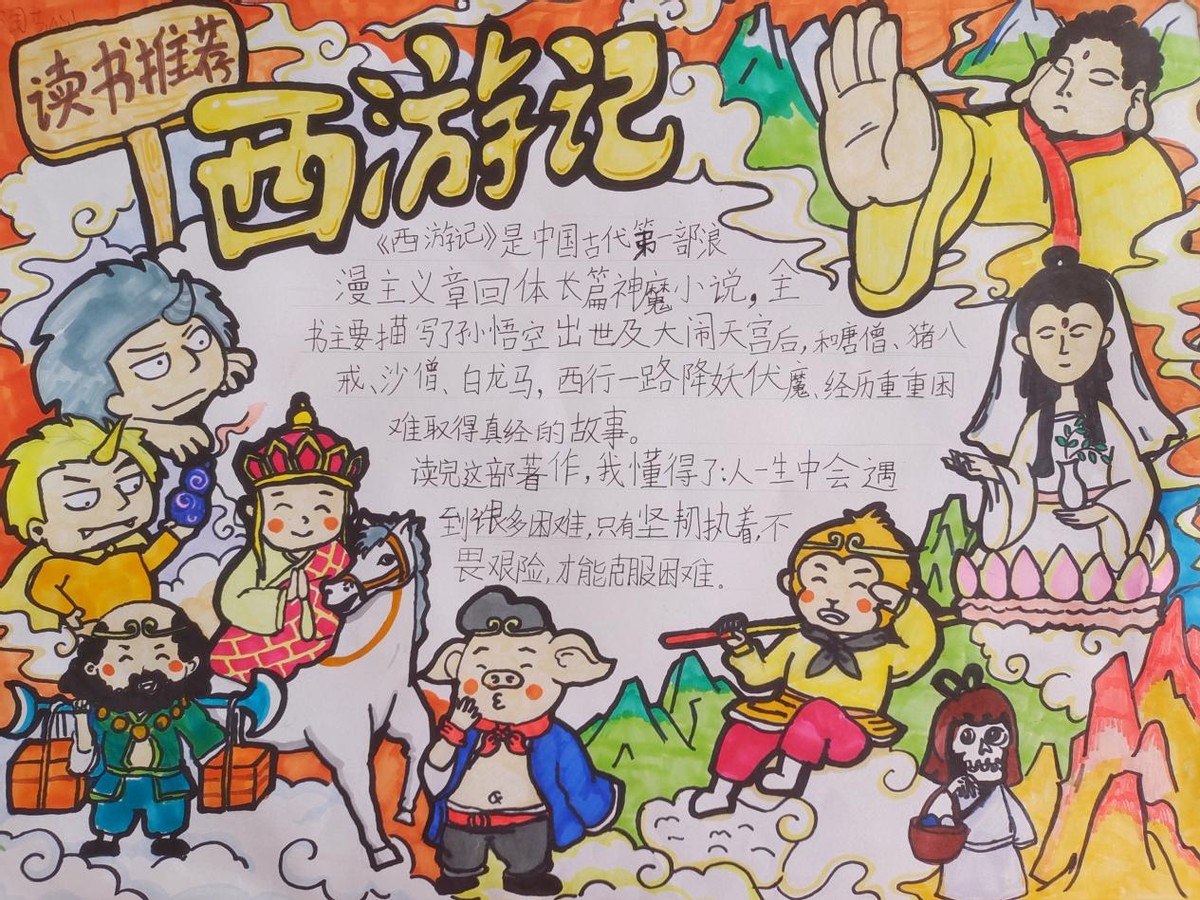 读书推荐
西游记
《西游记》是中国古代第一部浪
漫主义章回体长篇神魔小说，全
书主要描写了孙悟空出世及大闹天宫后，和唐僧、猪八
戒、沙僧、白龙马，西行一路降妖伏魔、经历重重困
难取得真经的故事。
读完这部著作，我懂得了：人一生中会遇
到很多困难，只有坚韧执着，不
畏艰险，才能克服困难。